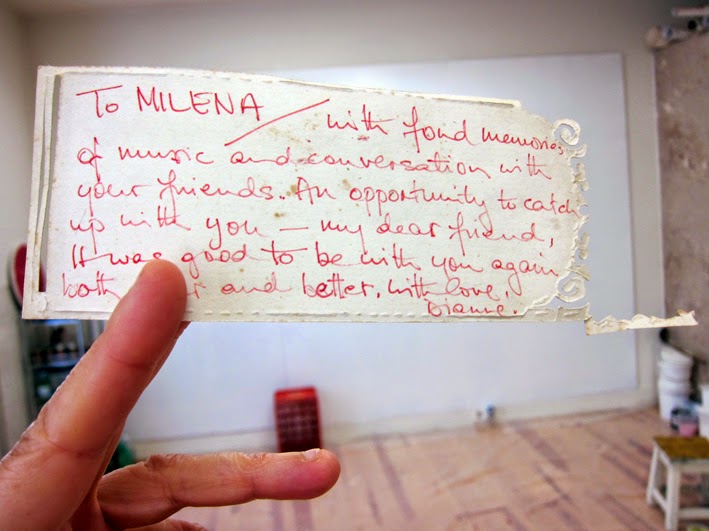 To MILENA / with fond memories
of music and conversation with
your friends. An opportunity to catch
up with you — my dear friend,
It was good to be with you again
both and better. with love,
Dianne.